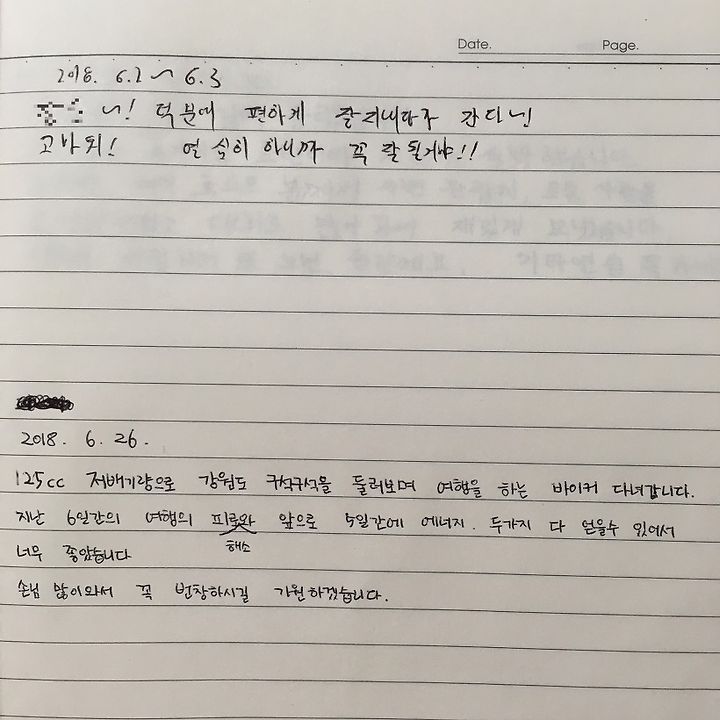 Date. Page.
2018. 6.2 ~ 6.3
~! 덕분에 편하게 잘 지내다가 간다!
고마워! 열심히 하니까 꼭 잘 될거야!!
2018. 6. 26.
125cc 저배기량으로 강원도 구석구석을 둘러보며 여행을 하는 바이커 다녀갑니다.
지난 6일간의 여행의 피로와 앞으로 5일간에 에너지. 두가지 다 얻을수 있어서
해소
너무 좋았습니다
손님 많이와서 꼭 번창하시길 기원하겠습니다.